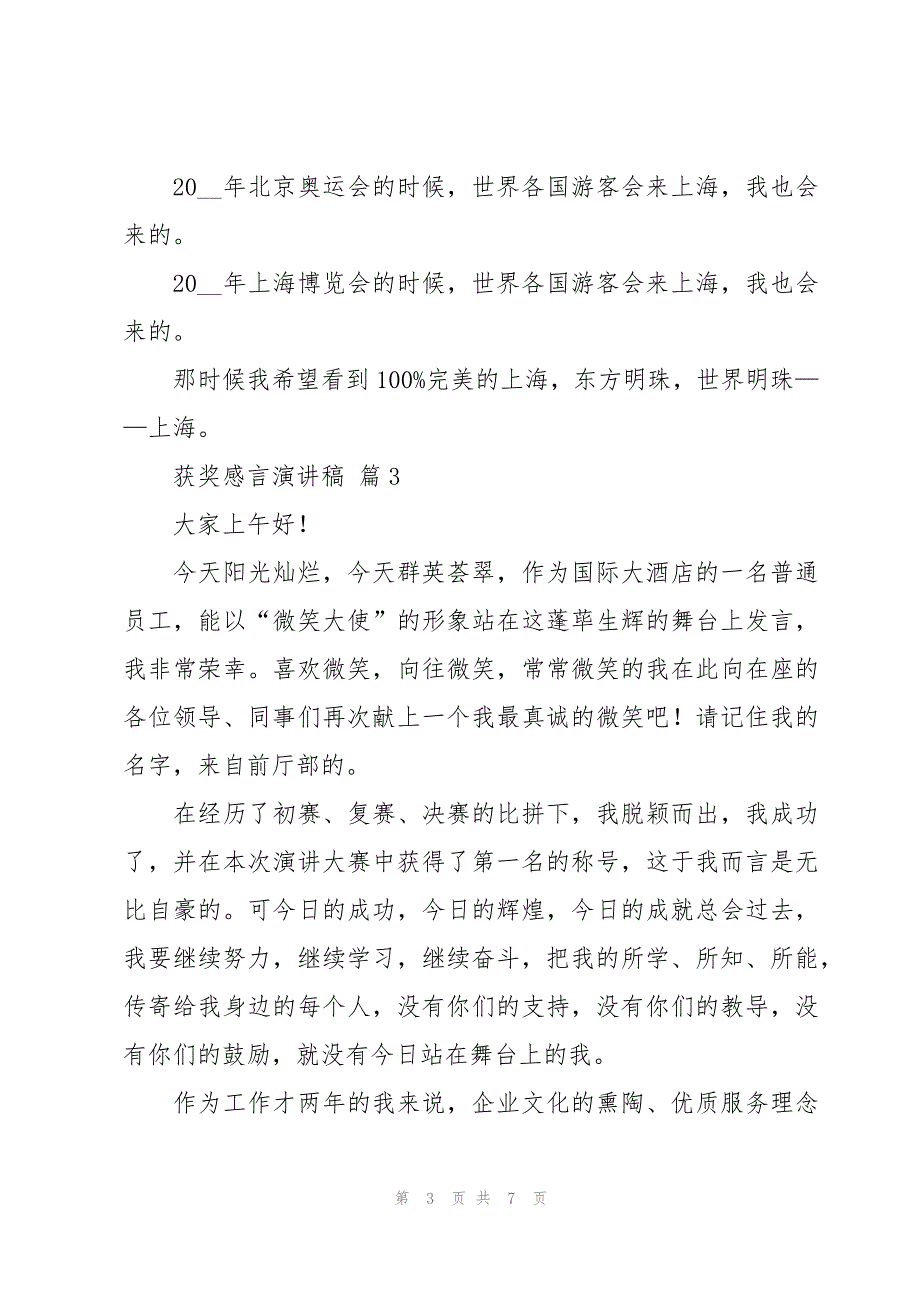 20__年北京奥运会的时候，世界各国游客会来上海，我也会
来的。
20__年上海博览会的时候，世界各国游客会来上海，我也会
来的。
那时候我希望看到100%完美的上海，东方明珠，世界明珠—
—上海。
获奖感言演讲稿 篇3
大家上午好！
今天阳光灿烂，今天群英荟翠，作为国际大酒店的一名普通
员工，能以“微笑大使”的形象站在这蓬荜生辉的舞台上发言，
我非常荣幸。喜欢微笑，向往微笑，常常微笑的我在此向在座的
各位领导、同事们再次献上一个我最真诚的微笑吧！请记住我的
名字，来自前厅部的。
在经历了初赛、复赛、决赛的比拼下，我脱颖而出，我成功
了，并在本次演讲大赛中获得了第一名的称号，这于我而言是无
比自豪的。可今日的成功，今日的辉煌，今日的成就总会过去，
我要继续努力，继续学习，继续奋斗，把我的所学、所知、所能，
传寄给我身边的每个人，没有你们的支持，没有你们的教导，没
有你们的鼓励，就没有今日站在舞台上的我。
作为工作才两年的我来说，企业文化的熏陶、优质服务理念
第 3 页 共 7 页